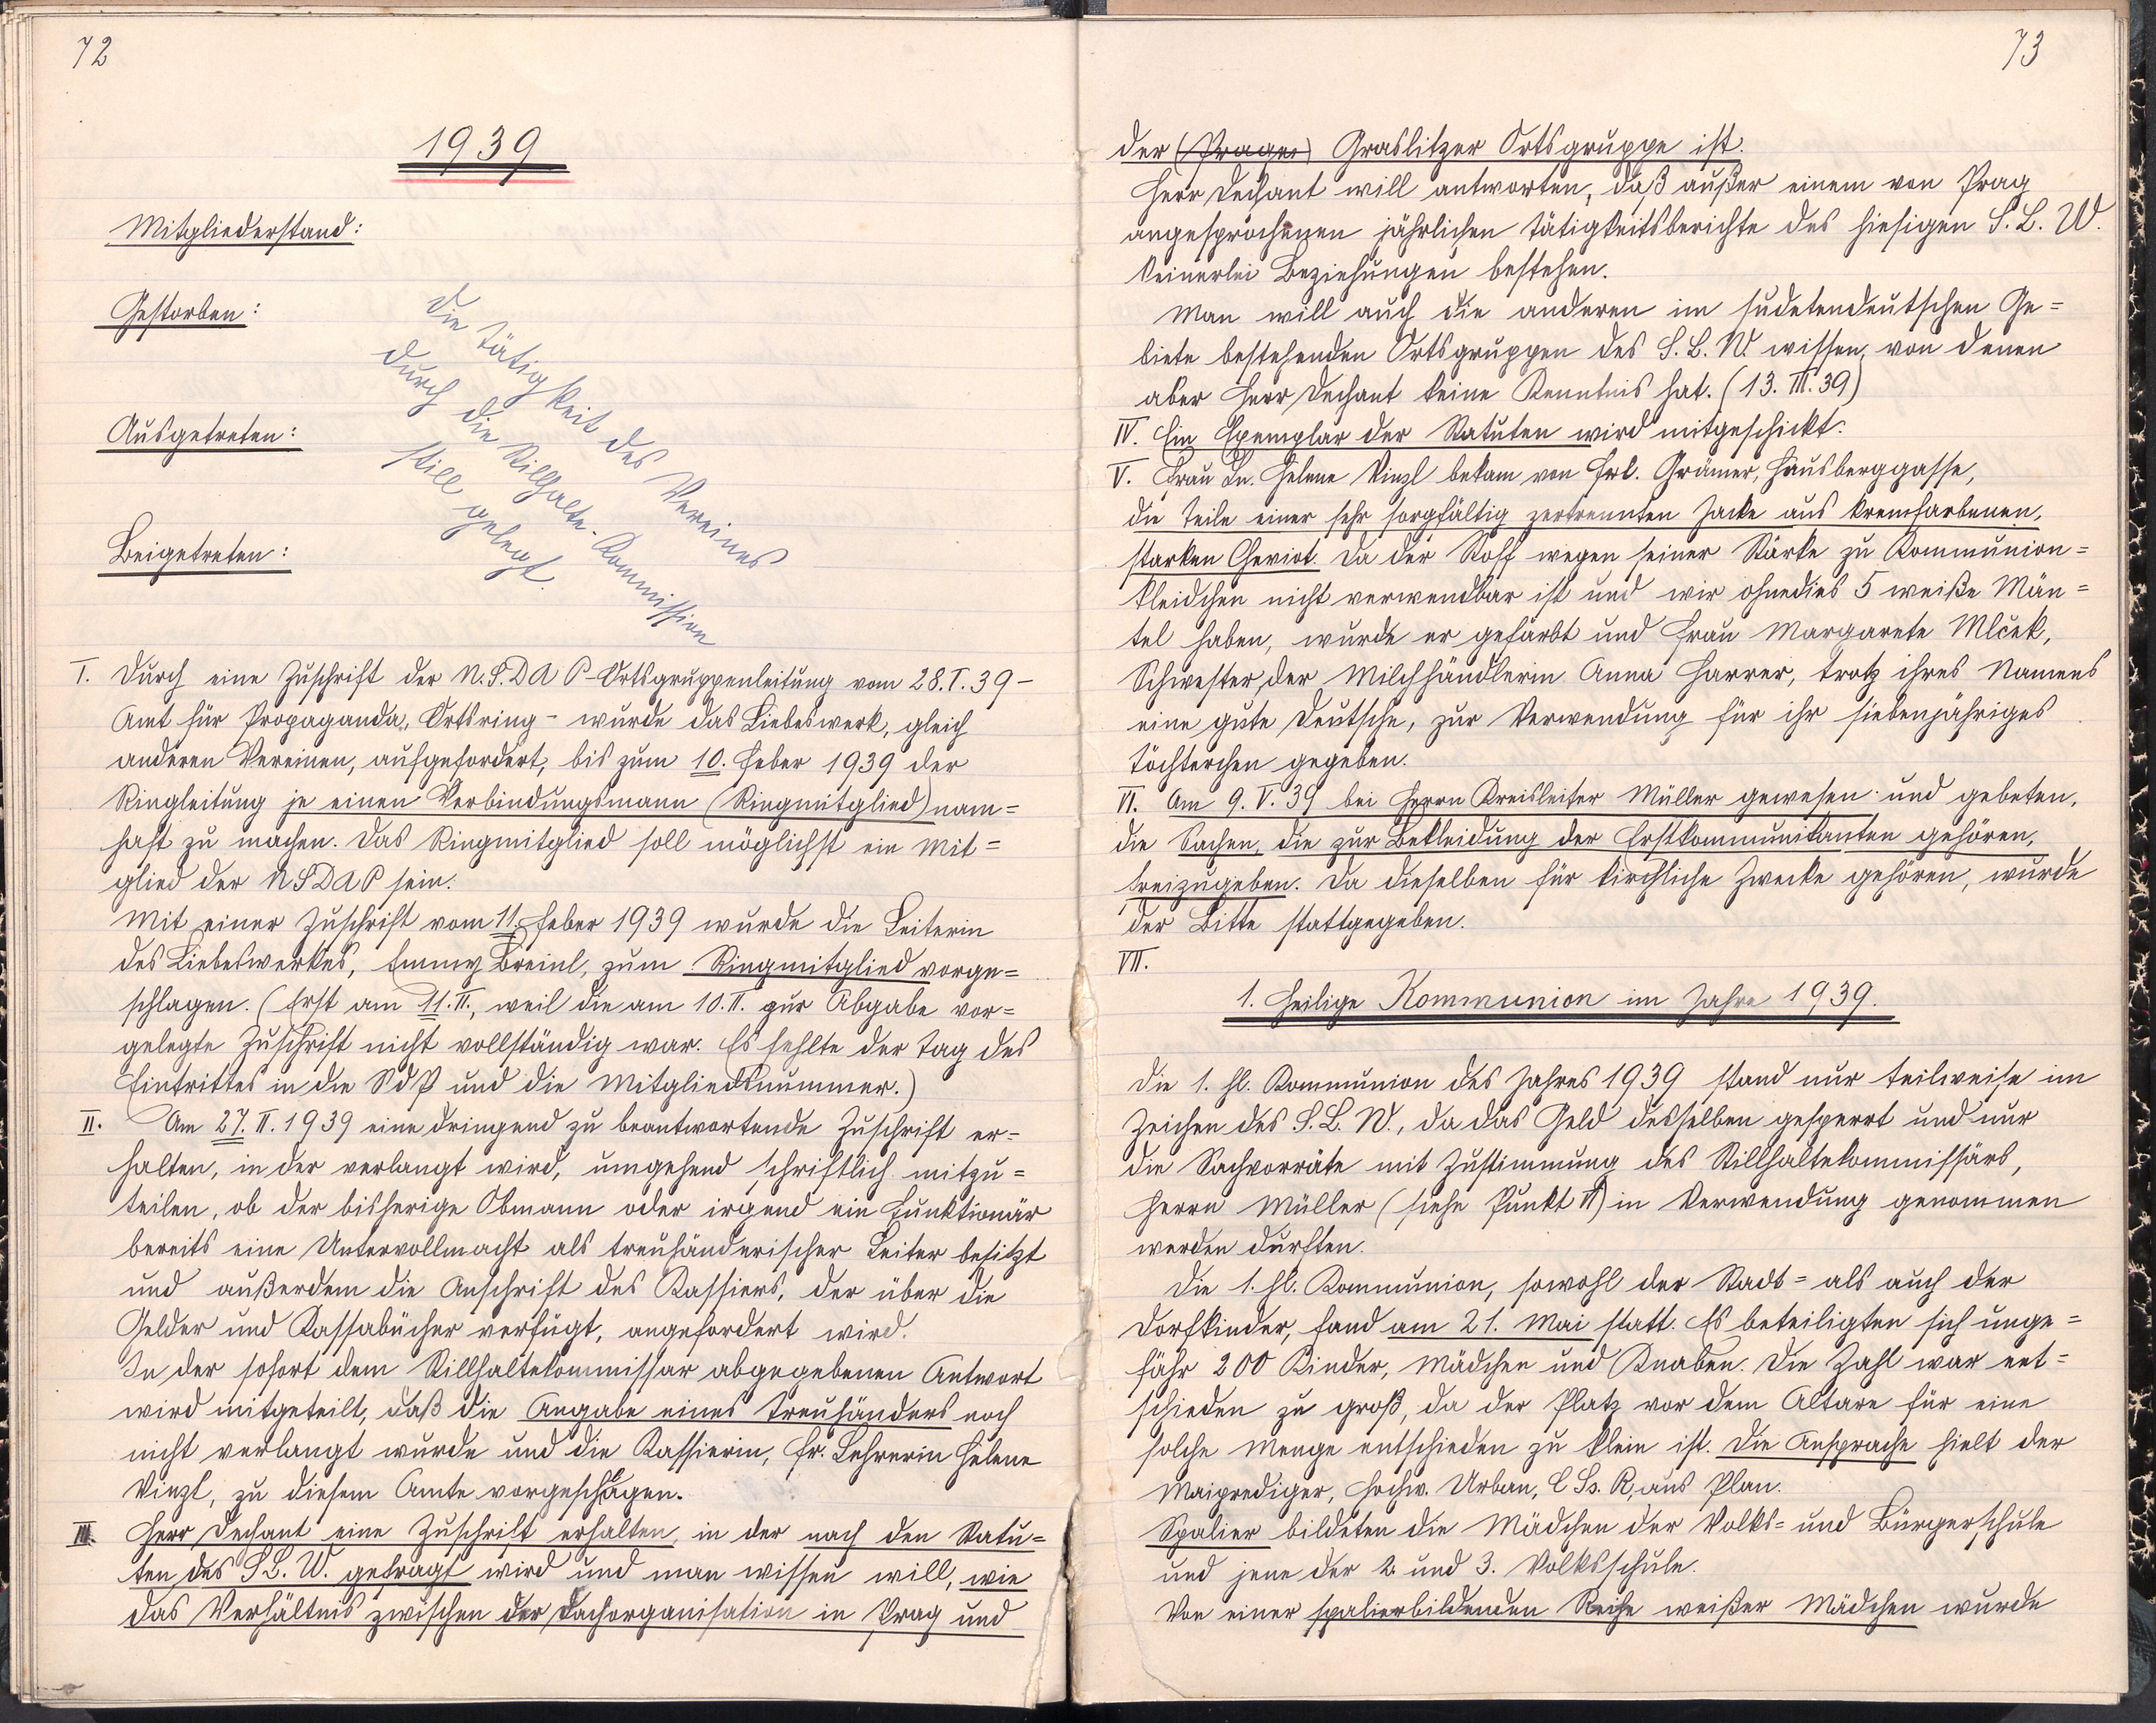 72
1939
Mitgliederstand:
Gestorben:
Ausgetreten:
Beigetreten:
Die Tätigkeit des Vereines
durch die Stillhalte-Kommission
still gelegt.
I. Durch eine Zuschrift der N.S.DAP-Ortsgruppenleitung vom 28.I.39-
Amt für Propaganda, Ortsring- wurde das Liebeswerk, gleich
anderen Vereinen, aufgefordert, bis zum 10. Feber 1939 der
Ringleitung je einen Verbindungsmann (Ringmitglied) nam=
haft zu machen. Das Ringmitglied soll möglichst ein Mit=
glied der NSDAP sein.
Mit einer Zuschrift vom 11. Feber 1939 wurde die Leiterin
des Liebeswerkes, Emmy Breinl, zum Ringmitglied vorge=
schlagen. (Erst am 11.II., weil die am 10.II. zur Abgabe vor=
gelegte Zuschrift nicht vollständig war. Es fehlte der Tag des
Eintrittes in die SdP und die Mitgliedsnummer.)
II. Am 27.II.1939 eine dringend zu beantwortende Zuschrift er=
halten, in der verlangt wird, umgehend schriftlich mitzu=
teilen, ob der bisherige Obmann oder irgend ein Funktionär
bereits eine Untervollmacht als treuhänderischer Leiter besitzt
und außerdem die Anschrift des Kassiers, der über die
Gelder und Kassabücher verfügt, angefordert wird.
In der sofort dem Stillhaltekommissar abgegebenen Antwort
wird mitgeteilt, daß die Angabe eines Treuhänders noch
nicht verlangt wurde und die Kassierin, Fr. Lehrerin Helene
Vinzl, zu diesem Amte vorgeschlagen.
III. Herr Dechant eine Zuschrift erhalten, in der nach den Statu=
ten des S.L.W. gefragt wird und man wissen will, wie
das Verhältnis zwischen der Dachorganisation in Prag und
73
der (Prager) Graslitzer Ortsgruppe ist.
Herr Dechant will antworten, daß außer einem von Prag
angesprochenen jährlichen Tätigkeitsberichte des hiesigen S.L.W.
keinerlei Beziehungen bestehen.
Man will auch die anderen im sudetendeutschen Ge=
biete bestehenden Ortsgruppen des S.L.W. wissen, von denen
aber Herr Dechant keine Kenntnis hat. (13.III.39)
IV. Ein Exemplar der Statuten wird mitgeschickt.
V. Frau Ln. Helene Vinzl bekam von Frl. Grämer, Hausberggasse,
die Teile einer sehr sorgfältig zertrennten Jacke aus kremfarbenen,
starken Cheviot. Da der Stoff wegen seiner Stärke zu Kommunion=
kleidchen nicht verwendbar ist und wir ohnedies 5 weiße Män=
tel haben, wurde er gefärbt und Frau Margarete Mlček,
Schwester der Milchhändlerin Anna Harrer, trotz ihres Namens
eine gute Deutsche, zur Verwendung für ihr siebenjähriges
Töchterchen gegeben.
VI. Am 9.V.39 bei Herrn Kreisleiter Müller gewesen und gebeten,
die Sachen, die zur Bekleidung der Erstkommunikanten gehören,
freizugeben. Da dieselben für kirchliche Zwecke gehören, wurde
der Bitte stattgegeben.
VII.
1. Heilige Kommunion im Jahre 1939.
Die 1. hl. Kommunion des Jahres 1939 stand nur teilweise im
Zeichen des S.L.W., da das Geld desselben gesperrt und nur
die Sachvorräte mit Zustimmung des Stillhaltekommissärs,
Herrn Müller (siehe Punkt VI) in Verwendung genommen
werden durften.
Die 1. hl. Kommunion, sowohl der Stadt= als auch der
Dorfkinder, fand am 21. Mai statt. Es beteiligten sich unge=
fähr 200 Kinder, Mädchen und Knaben. Die Zahl war ent=
schieden zu groß, da der Platz vor dem Altare für eine
solche Menge entschieden zu klein ist. Die Ansprache hielt der
Maiprediger, Hochw. Urban, C.Ss.R, aus Plan.
Spalier bildeten die Mädchen der Volks= und Bürgerschule
und jene der 2. und 3. Volksschule.
Von einer spalierbildenden Reihe weißer Mädchen wurde